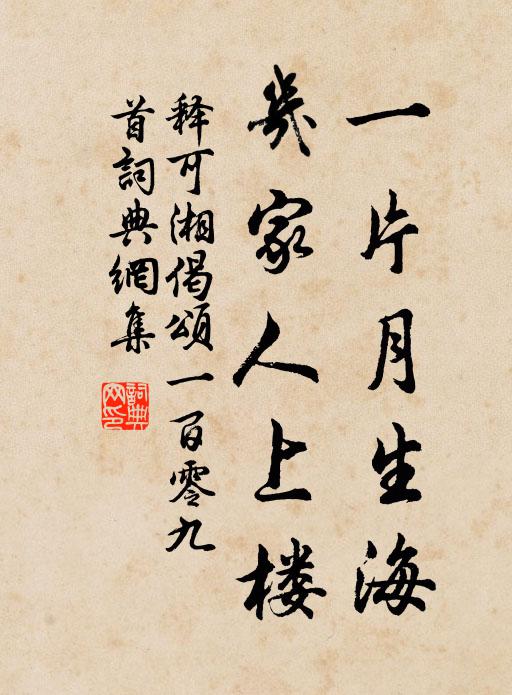 一片月生海
幾家人上楼
释可湘偈頌一百零九
首詞典網集
詞典网印